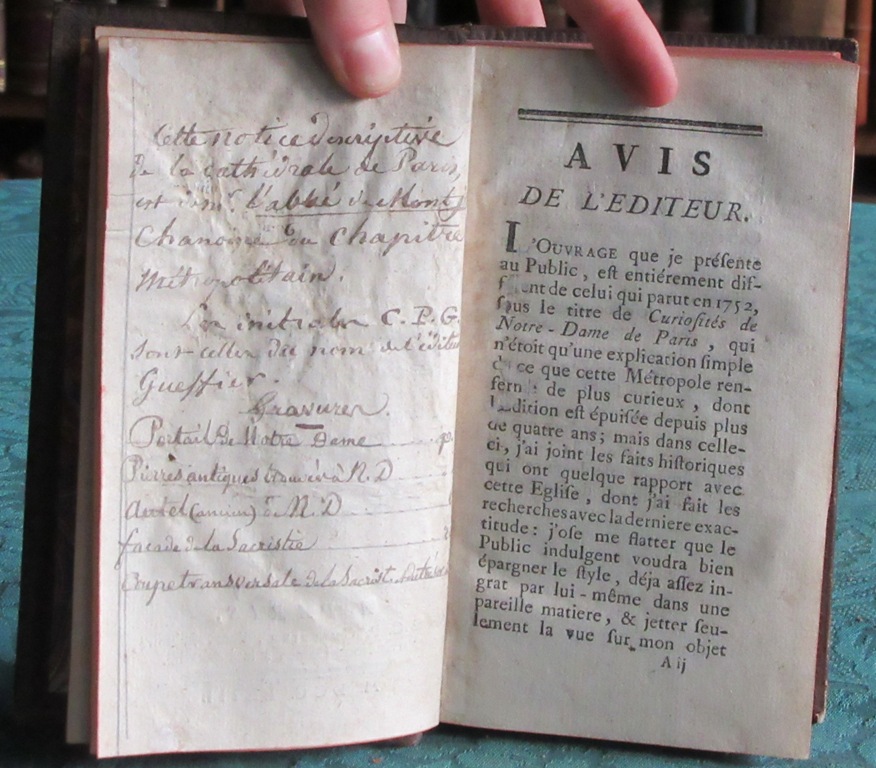 Cette notice descriptive
de la cathédrale de Paris,
est de mr. l'abbé de Montj
Chanoine du chapitre
Métropolitain.
Les initiales C. P. G.
sont celles du nom de l'éditeur
Gueffier.
Gravures.
Portail de Notre Dame
Pierres antiques trouvées à N. D
Autel (ancien) de N. D
façade de la Sacristie
Coupe transversale de la Sacrist.
AVIS
DE L'EDITEUR.
L'OUVRAGE que je préſente
au Public, eſt entiérement dif-
férent de celui qui parut en 1752,
ſous le titre de Curioſités de
Notre-Dame de Paris, qui
n'étoit qu'une explication ſimple
de ce que cette Métropole ren-
ferme de plus curieux, dont
l'édition eſt épuiſée depuis plus
de quatre ans; mais dans celle-
ci, j'ai joint les faits hiſtoriques
qui ont quelque rapport avec
cette Egliſe, dont j'ai fait les
recherches avec la derniere exac-
titude: j'oſe me flatter que le
Public indulgent voudra bien
épargner le ſtyle, déja aſſez in-
grat par lui-même dans une
pareille matiere, & jetter ſeu-
lement la vue ſur mon objet
A ij